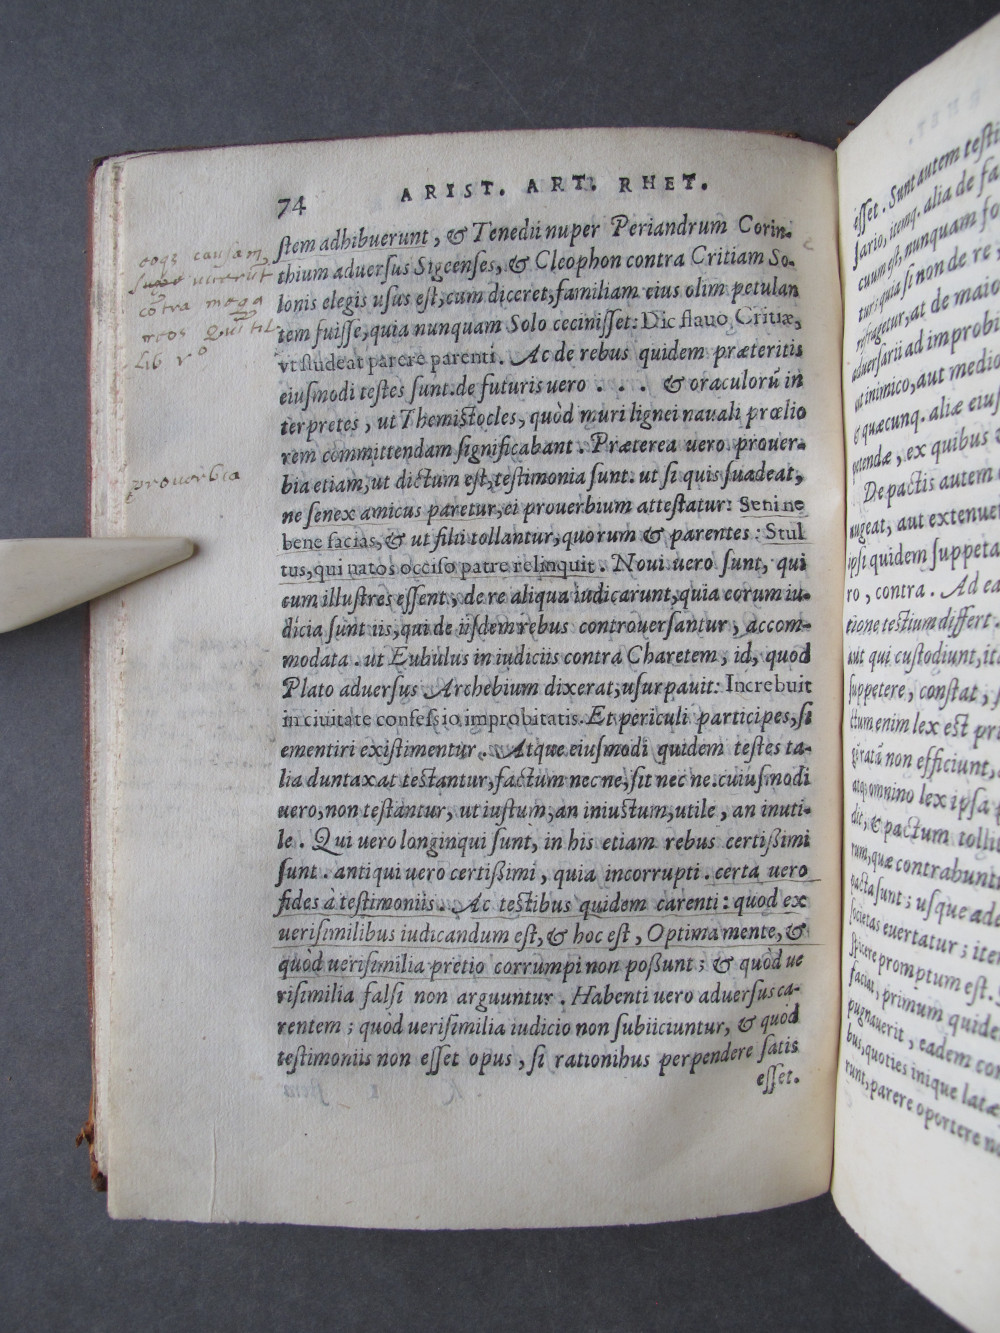 74 ARIST. ART. RHET.
ſtem adhibuerunt, & Tenedii nuper Periandrum Corin-
thium aduerſus Sigeenſes, & Cleophon contra Critiam So-
lonis elegis uſus eſt, cum diceret, familiam eius olim petulan
tem fuiſſe, quia nunquam Solo ceciniſſet: Dic flauo Critiæ,
vt ſtudeat parere parenti. Ac de rebus quidem præteritis
eiuſmodi teſtes ſunt. de futuris uero . . . & oraculorū in
terpretes, ut Themiſtocles, quòd muri lignei nauali prœlio
rem committendam ſignificabant. Præterea uero prouer-
bia etiam, ut dictum eſt, teſtimonia ſunt: ut ſi quis ſuadeat,
ne ſenex amicus paretur, ei prouerbium atteſtatur: Seni ne
bene facias, & ut filii tollantur, quorum & parentes: Stul
tus, qui natos occiſo patre relinquit. Noui uero ſunt, qui
cum illuſtres eſſent, de re aliqua iudicarunt, quia eorum iu-
dicia ſunt iis, qui de iiſdem rebus controuerſantur, accom-
modata. ut Eubulus in iudiciis contra Charetem, id, quod
Plato aduerſus Archebium dixerat, uſurpauit: Increbuit
in ciuitate confeſsio improbitatis. Et periculi participes, ſi
ementiri exiſtimentur. Atque eiuſmodi quidem teſtes ta-
lia duntaxat teſtantur, factum nec ne, ſit nec ne. cuiuſmodi
uero, non teſtantur, ut iuſtum, an iniuſtum, utile, an inuti-
le. Qui uero longinqui ſunt, in his etiam rebus certißimi
ſunt. antiqui uero certißimi, quia incorrupti. certa uero
fides à teſtimoniis. Ac teſtibus quidem carenti: quod ex
ueriſimilibus iudicandum eſt, & hoc eſt, Optima mente, &
quòd ueriſimilia pretio corrumpi non poßunt; & quòd ue
riſimilia falſi non arguuntur. Habenti uero aduerſus ca-
rentem; quòd ueriſimilia iudicio non ſubiiciuntur, & quòd
teſtimoniis non eſſet opus, ſi rationibus perpendere ſatis
eſſet.
cauſam
cōtra mega
Lib
prouerbia
eſſet. Sunt autem teſti
ſario, itemq. alia de fa
nunquam fo
tur: quia ſi non de re
at de maio
aduerſarii ad improbi
aut inimico, aut medio
& quæcunq. aliæ eiuſ
petendæ, ex quibus
De pactis autem
augeat, aut extenuet
ipſi quidem ſuppeta
ro, contra. Ad ea
tione teſtium differt.
aut qui cuſtodiunt, ita
ſuppetere, conſtat,
ctum enim lex eſt pri
ratā non efficiunt,
atq; omnino lex ipſa
dit, & pactum tollit
rum, quæ contrahuntu
pacta ſunt; uſque adeo
ſocietas euertatur; item
ſpicere promptum eſt.
faciat, primum quide
pugnauerit, eadem con
bus, quoties inique latæ
runt, parere oportere n